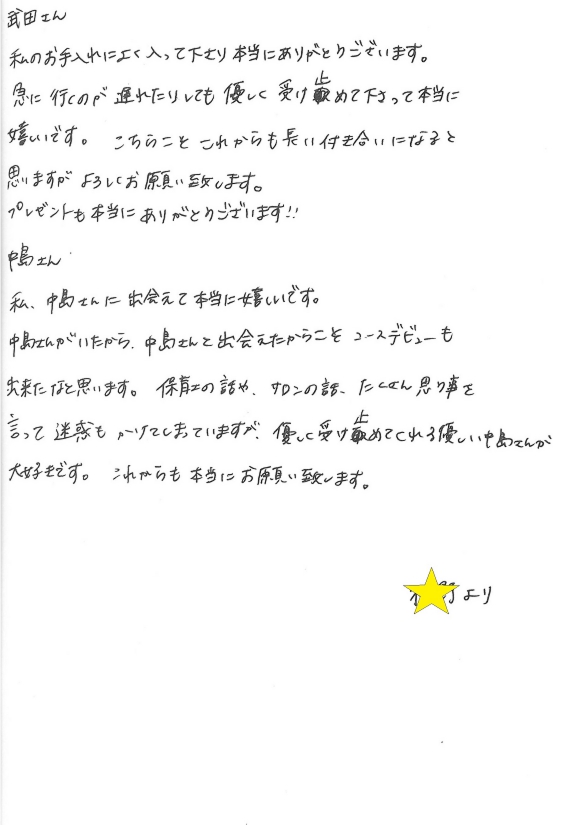 武田さん
私のお手入れによく入って下さり本当にありがとうございます。
急に行くのが遅れたりしても優しく受け止めて下さって本当に
嬉しいです。 こちらこそこれからも長い付き合いになると
思いますがよろしくお願い致します。
プレゼントも本当にありがとうございます!!
中島さん
私、中島さんに出会えて本当に嬉しいです。
中島さんがいたから、中島さんと出会えたからこそコースデビューも
出来たなと思います。 保育士の話や、サロンの話、たくさん思う事を
言って迷惑もかけてしまっていますが、優しく受け止めてくれる優しい中島さんが
大好きです。 これからも本当にお願い致します。
より